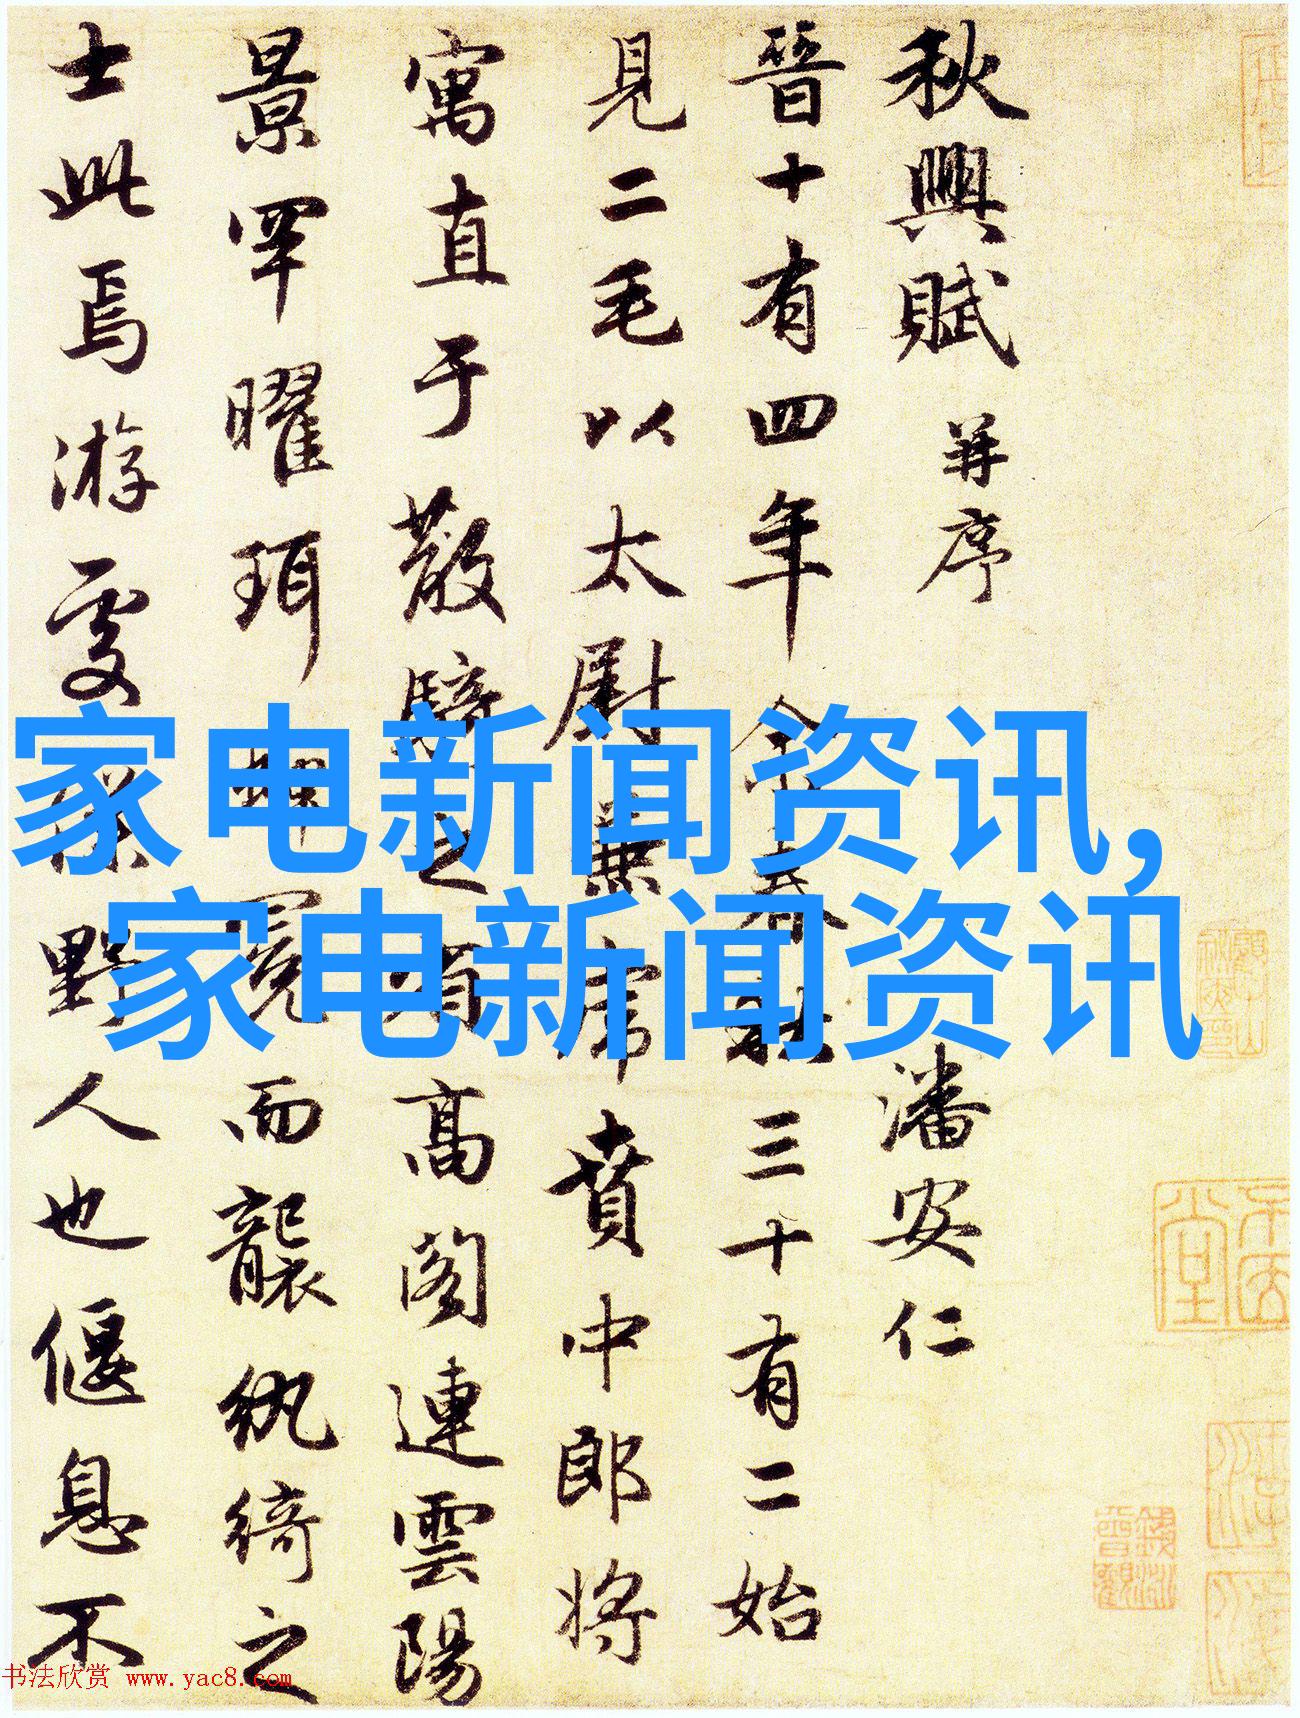 秋興賦 并序 潘安仁
晉十有四年余春秋三十有二始
見二毛以太尉兼虎賁中郎將
寓直于散騎之省高閣連雲陽
景罕曜珥蟬冕而襲紈綺之
士此焉游處僕野人也偃息不
家电新闻资讯,
家电新闻资讯
书法欣赏 www.yac8.com